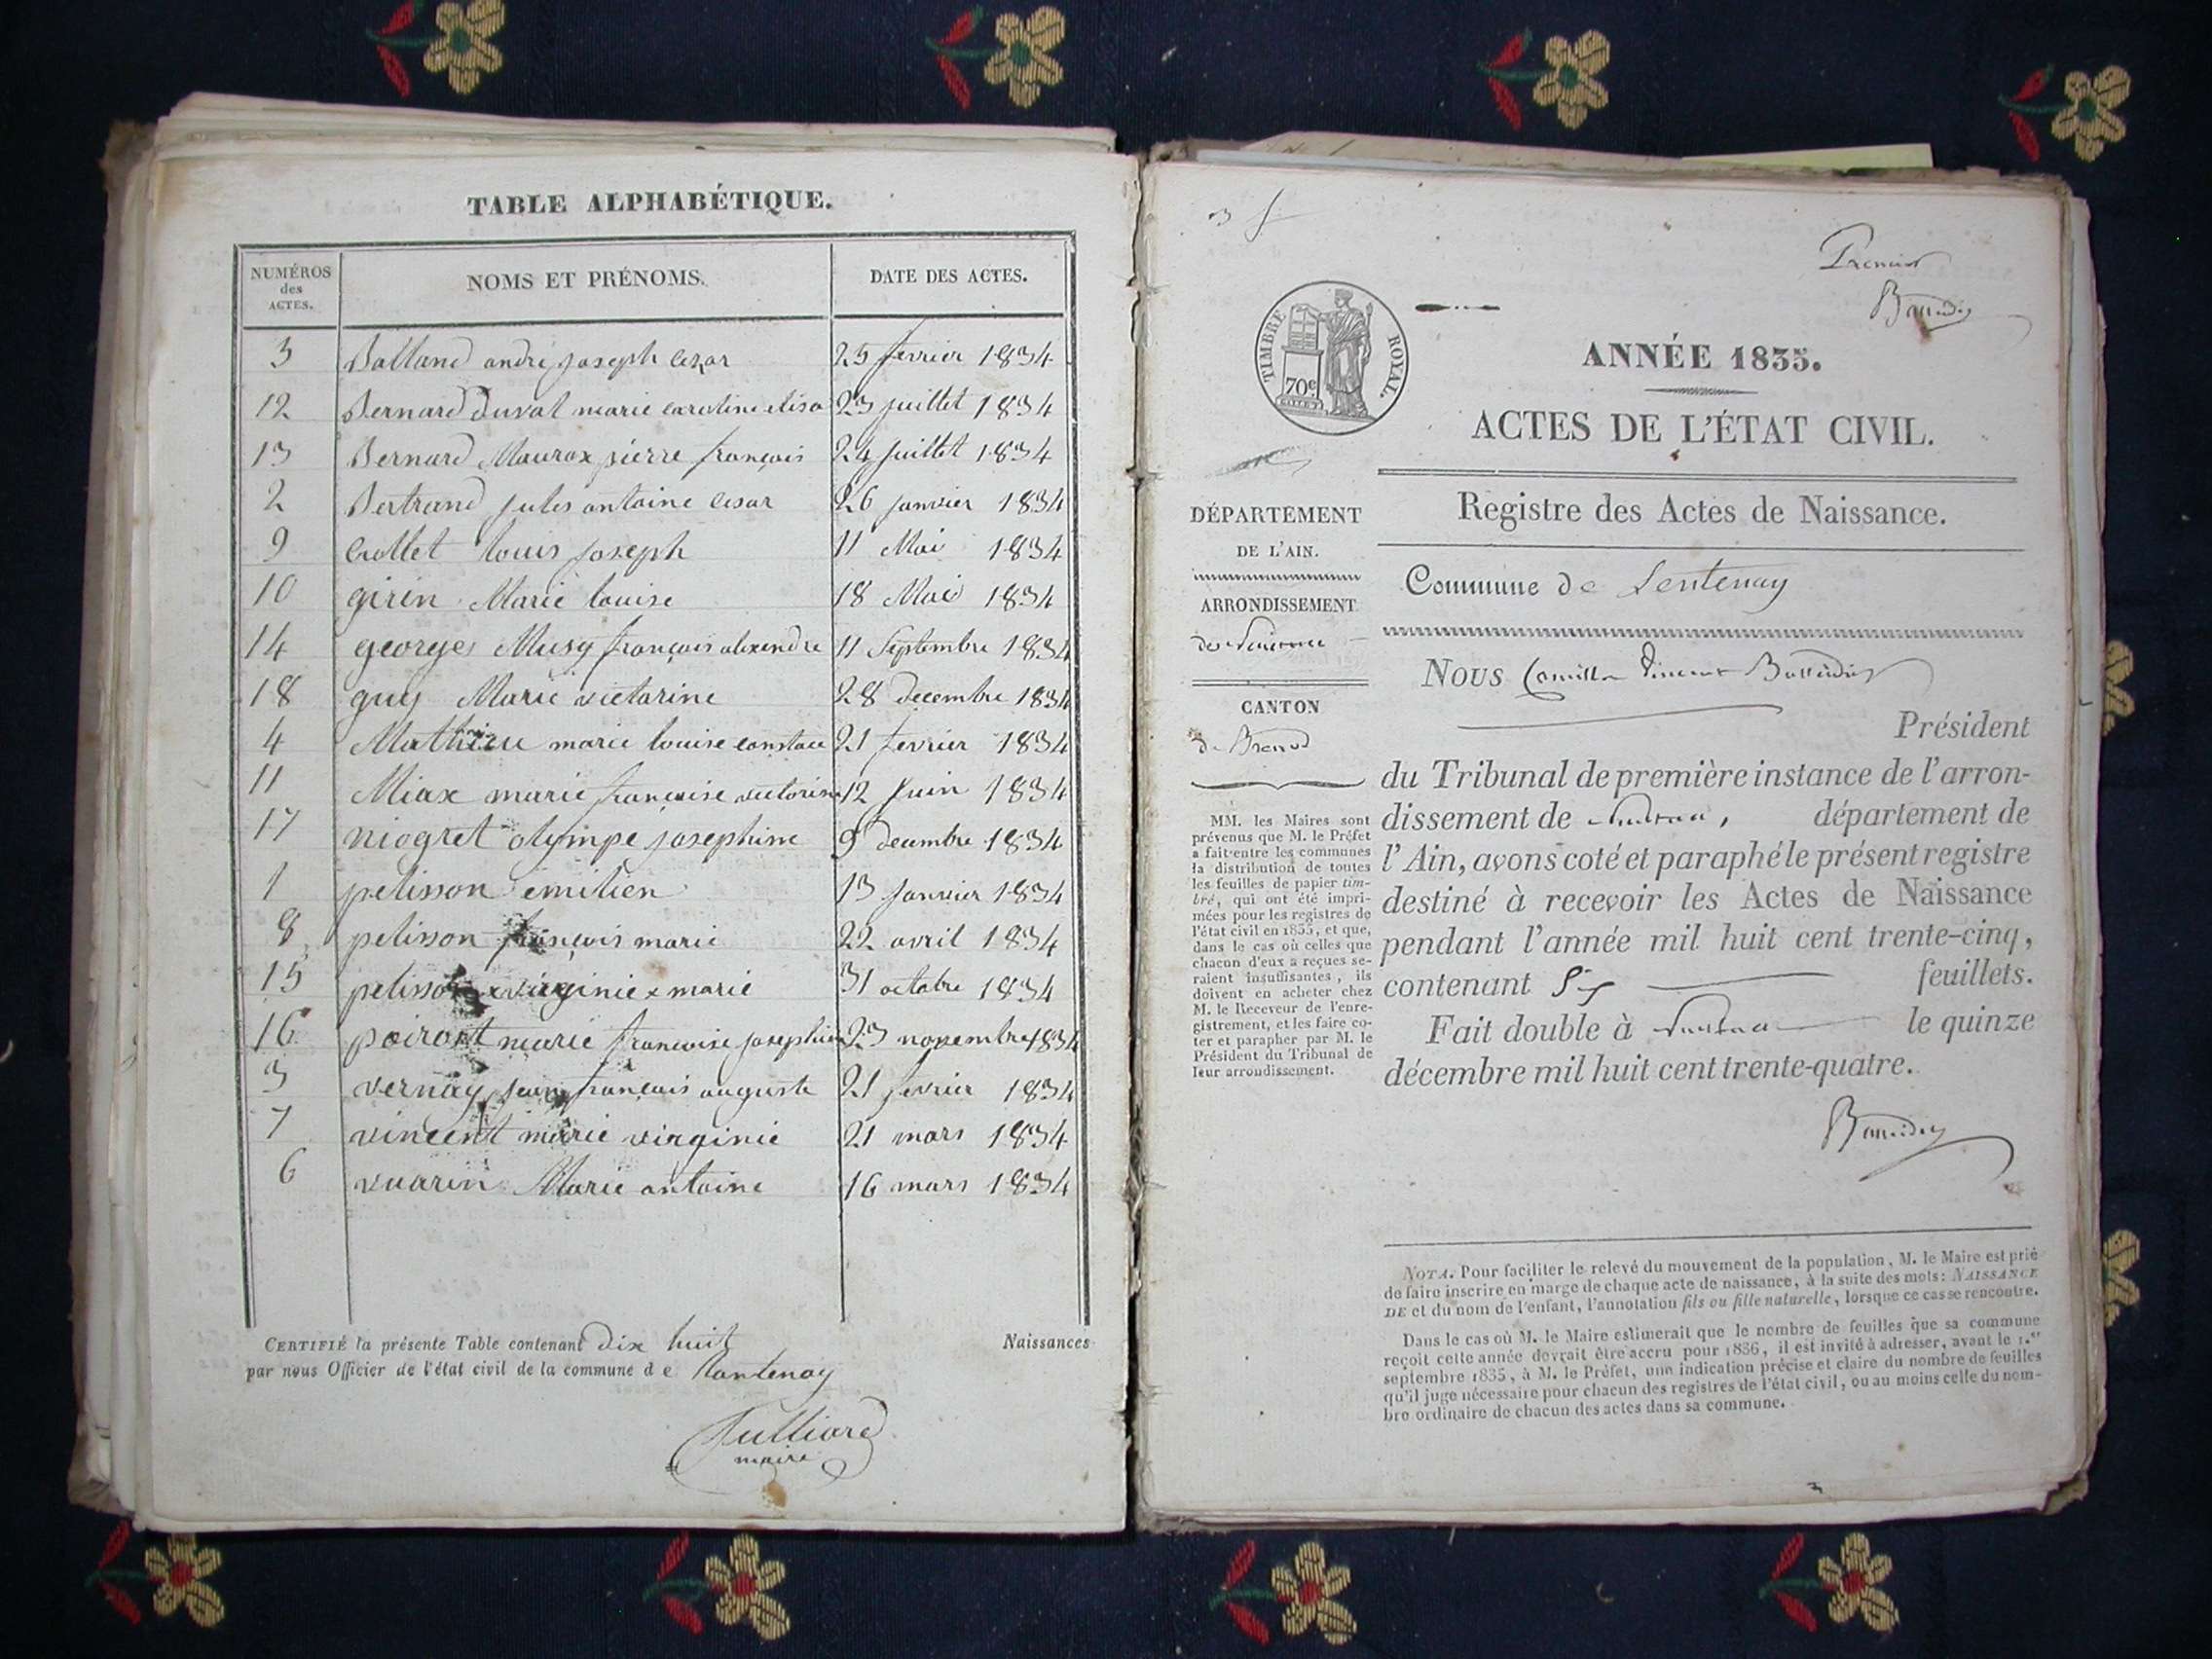 TABLE ALPHABÉTIQUE.
NUMÉROS des ACTES. NOMS ET PRÉNOMS. DATE DES ACTES.
3 Balland andré joseph cesar 25 fevrier 1834
12 Bernard Duval marie caroline elisa 23 juillet 1834
13 Bernard Maurax pierre françois 24 juillet 1834
2 Bertrand jules antoine cesar 26 janvier 1834
9 Crottet louis joseph 11 Mai 1834
10 girin Marie louise 18 Mai 1834
14 georges Musy françois alexendre 11 Septembre 1834
18 guy Marie victorine 28 decembre 1834
4 Mathieu marie louise constace 21 fevrier 1834
11 Miax marie francoise victorine 12 Juin 1834
17 niogret olympe josephine 9 decembre 1834
1 pelisson emilien 13 Janvier 1834
8 pelisson françois marie 22 avril 1834
15 pelisson virginie marie 31 octobre 1834
16 marie francoise josephine 23 novembre 1834
3 vernay jean françois auguste 21 fevrier 1834
7 vincent marie virginie 21 mars 1834
6 vuarin Marie antoine 16 mars 1834
CERTIFIÉ la présente Table contenant dix huit Naissances
par nous Officier de l'état civil de la commune de Lantenay
Julliard
maire
3 f
Premier
TIMBRE ROYAL.
70c
ANNÉE 1835.
ACTES DE L'ÉTAT CIVIL.
Registre des Actes de Naissance.
Commune de Lentenay
DÉPARTEMENT
DE L'AIN.
ARRONDISSEMENT
de
CANTON
de Brenod
MM. les Maires sont
prévenus que M. le Préfet
a fait entre les communes
la distribution de toutes
les feuilles de papier tim-
bré, qui ont été impri-
mées pour les registres de
l'état civil en 1835, et que,
dans le cas où celles que
chacun d'eux a reçues se-
raient insuffisantes, ils
doivent en acheter chez
M. le Receveur de l'enre-
gistrement, et les faire co-
ter et parapher par M. le
Président du Tribunal de
leur arrondissement.
Nous Camille Vincent
Président
du Tribunal de première instance de l'arron-
dissement de Nantua, département de
l'Ain, avons coté et paraphé le présent registre
destiné à recevoir les Actes de Naissance
pendant l'année mil huit cent trente-cinq,
contenant Six feuillets.
Fait double à Nantua le quinze
décembre mil huit cent trente-quatre.
NOTA. Pour faciliter le relevé du mouvement de la population, M. le Maire est prié
de faire inscrire en marge de chaque acte de naissance, à la suite des mots: NAISSANCE
DE et du nom de l'enfant, l'annotation fils ou fille naturelle, lorsque ce cas se rencontre.
Dans le cas où M. le Maire estimerait que le nombre de feuilles que sa commune
reçoit cette année devrait être accru pour 1836, il est invité à adresser, avant le 1.er
septembre 1835, à M. le Préfet, une indication précise et claire du nombre de feuilles
qu'il juge nécessaire pour chacun des registres de l'état civil, ou au moins celle du nom-
bre ordinaire de chacun des actes dans sa commune.